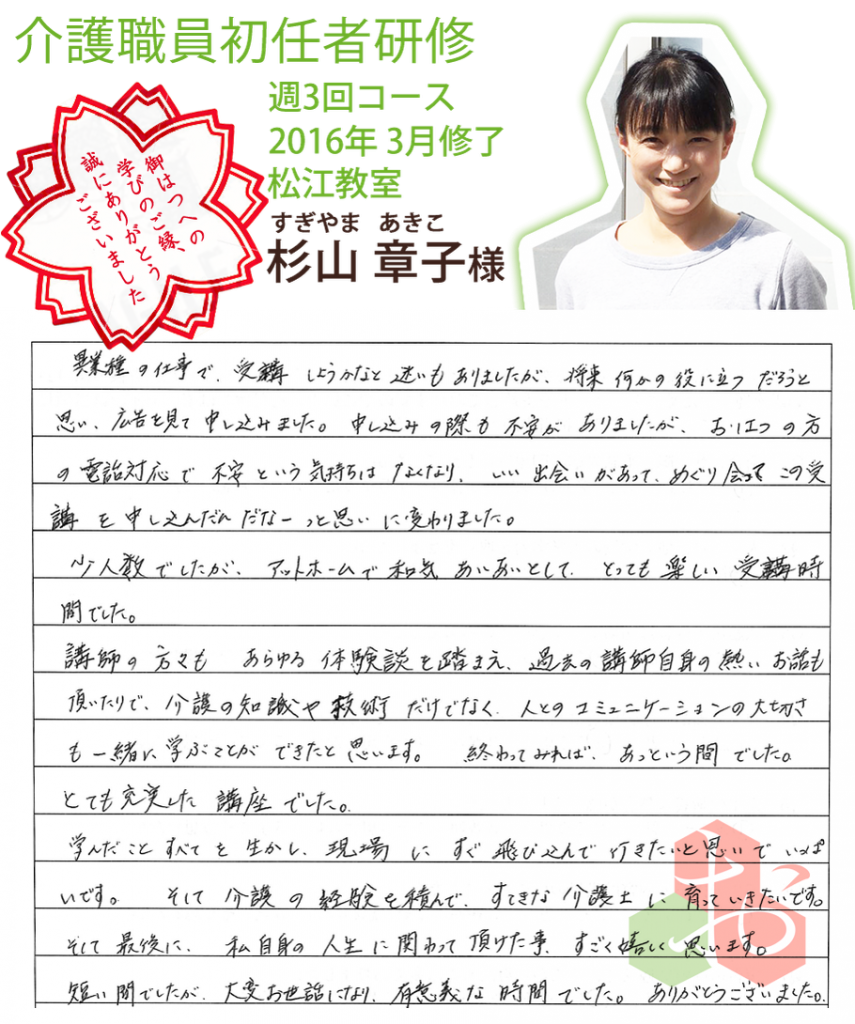 介護職員初任者研修
週3回コース
2016年 3月修了
松江教室
すぎやま あきこ
杉山 章子様
御はつへの
学びのご縁、
誠にありがとう
ございました
異業種の仕事で、受講しようかなと迷いもありましたが、将来何かの役に立つだろうと
思い、広告を見て申し込みました。申し込みの際も不安がありましたが、おはつの方
の電話対応で不安という気持ちはなくなり、いい出会いがあって、めぐり会ってこの受
講を申し込んだんだなーっと思いに変わりました。
少人数でしたが、アットホームで和気あいあいとして、とっても楽しい受講時
間でした。
講師の方々も あらゆる体験談を踏まえ、過去の講師自身の熱いお話も
頂いたりで、介護の知識や技術だけでなく、人とのコミュニケーションの大切さ
も一緒に学ぶことができたと思います。 終わってみれば、あっという間でした。
とても充実した講座でした。
学んだことすべてを生かし、現場にすぐ飛び込んで行きたいと思いでいっぱ
いです。 そして介護の経験を積んで、すてきな介護士に育っていきたいです。
そして最後に、私自身の人生に関わって頂けた事、すごく嬉しく思います。
短い間でしたが、大変お世話になり、有意義な時間でした。ありがとうございました。
お